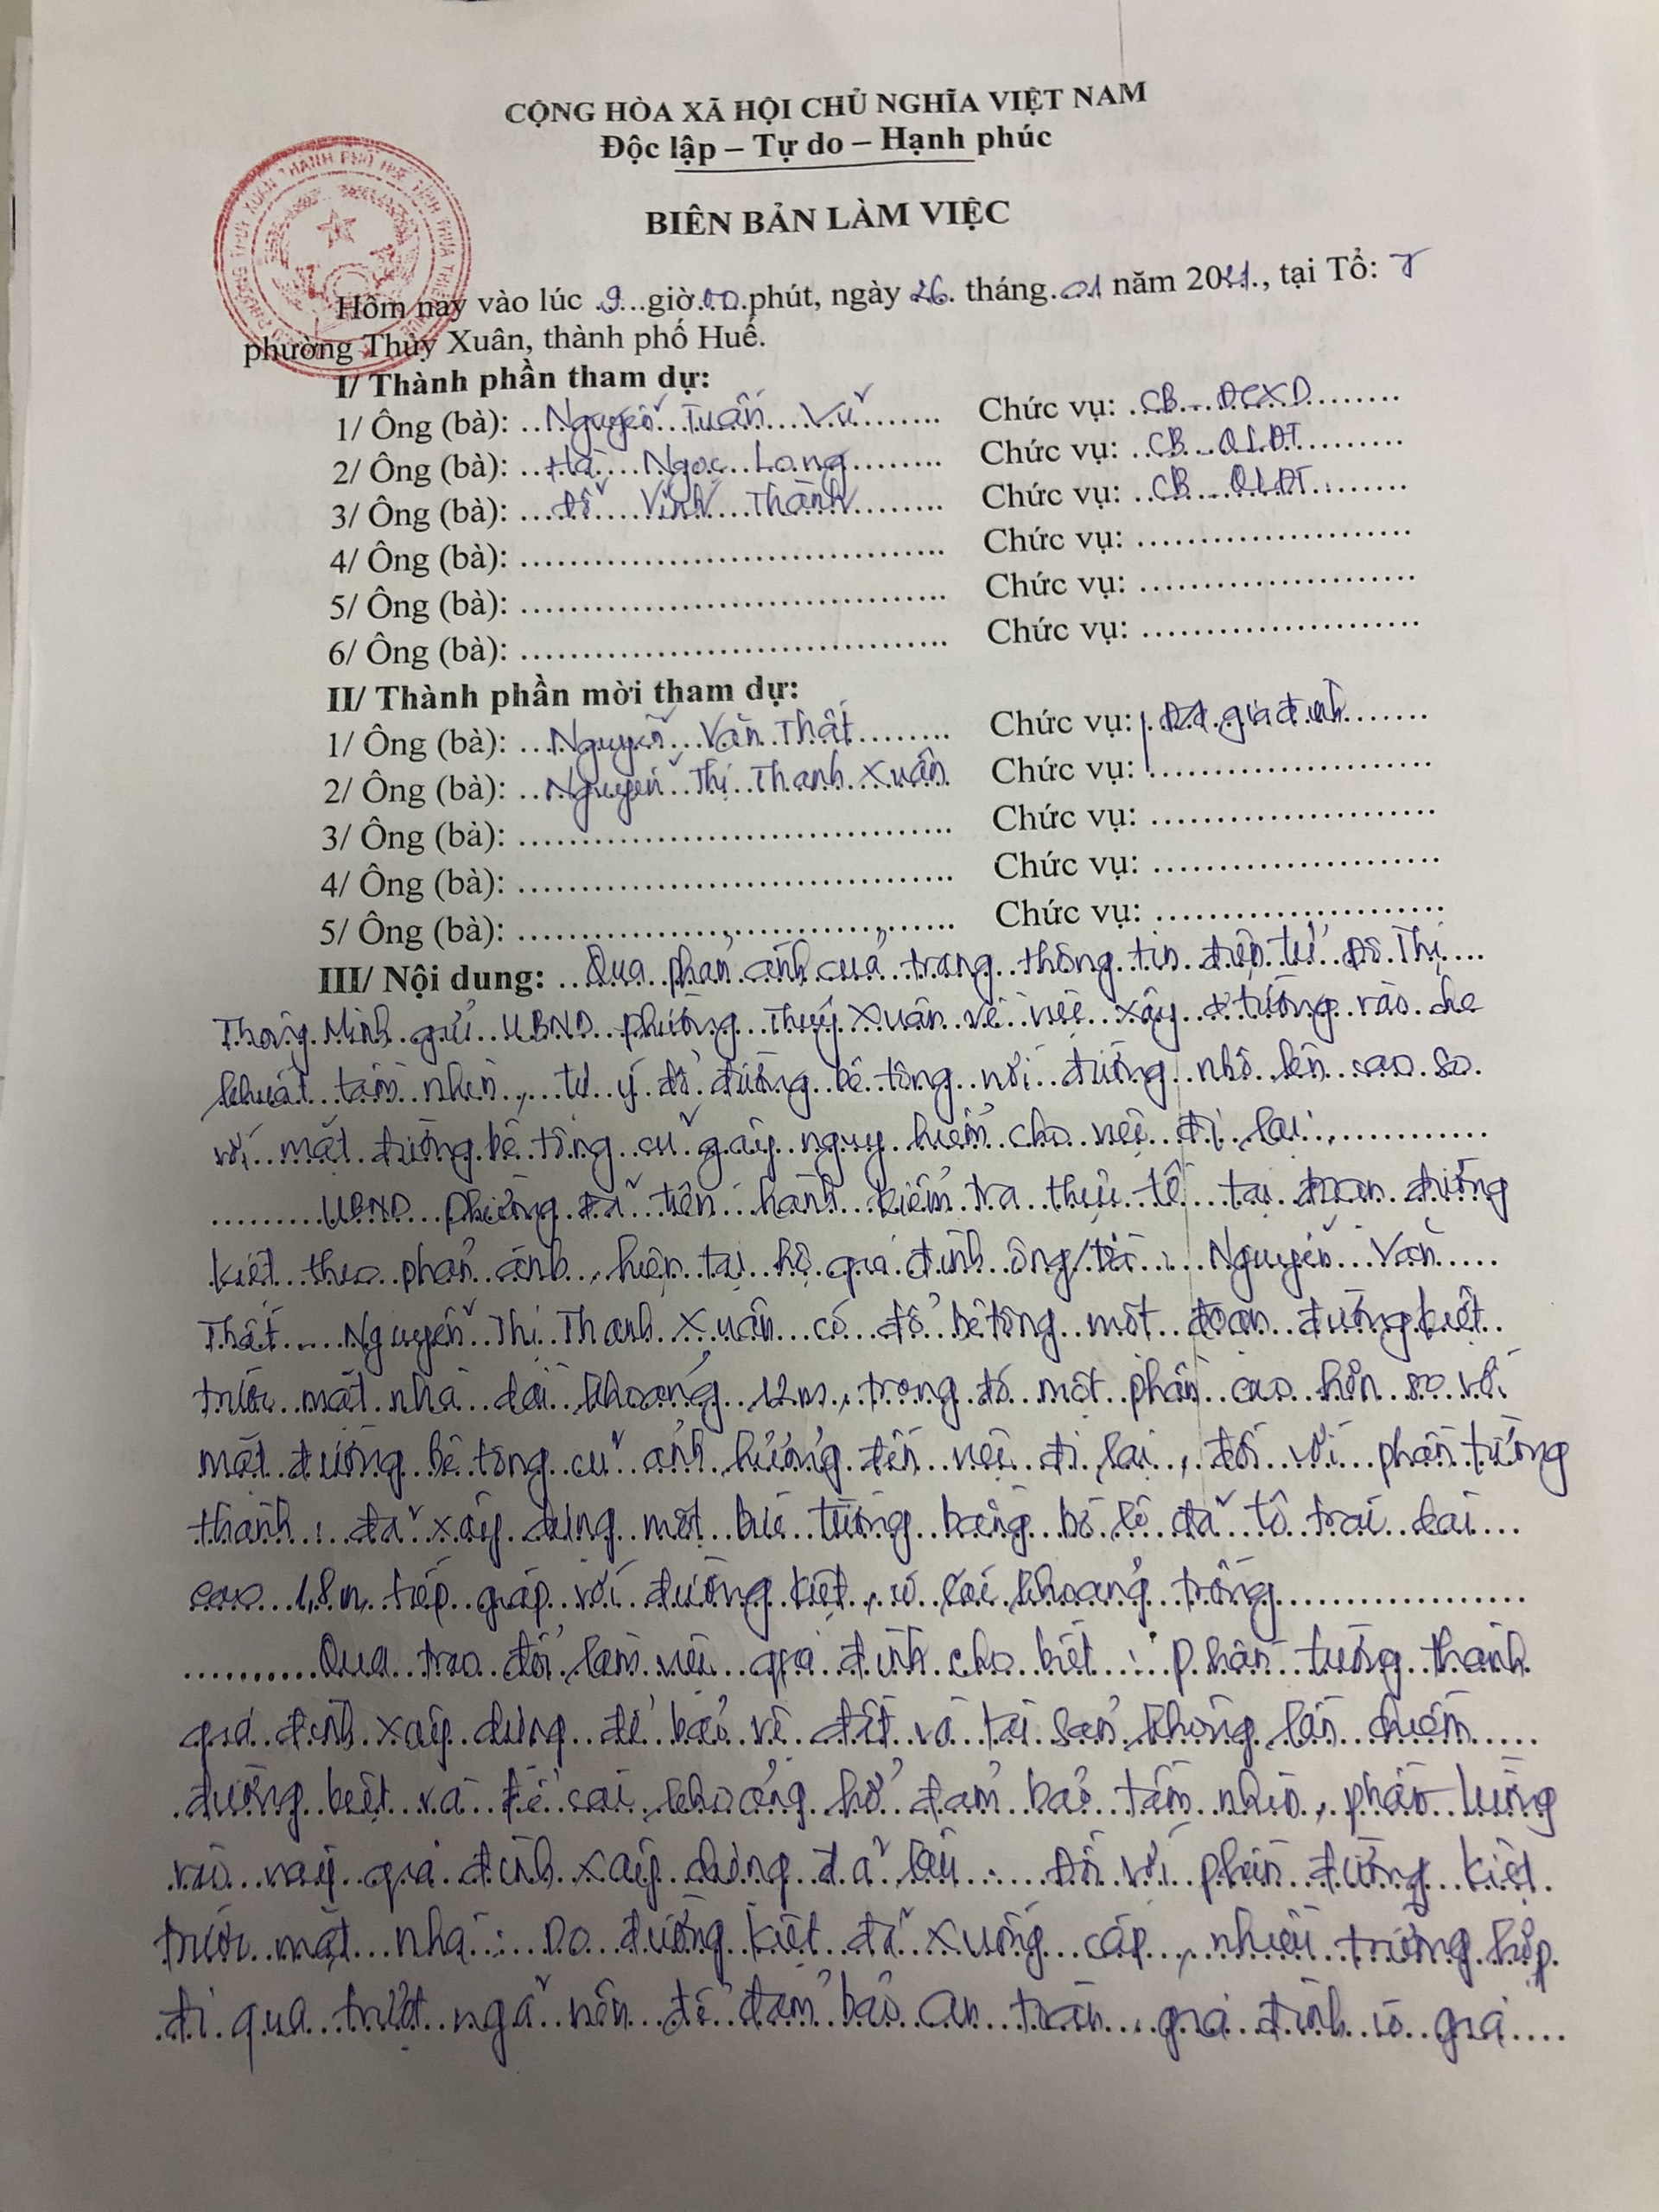 CỘNG HÒA XÃ HỘI CHỦ NGHĨA VIỆT NAM
Độc lập – Tự do – Hạnh phúc
BIÊN BẢN LÀM VIỆC
Hôm nay vào lúc 9 giờ 00 phút, ngày 26 tháng 01 năm 2021, tại Tổ: 7
phường Thủy Xuân, thành phố Huế.
I/ Thành phần tham dự:
1/ Ông (bà): Nguyễn Tuấn Vũ Chức vụ: CB ĐCXD
2/ Ông (bà): Hà Ngọc Long Chức vụ: CB QLĐT
3/ Ông (bà): Đỗ Vĩnh Thành Chức vụ: CB QLĐT
4/ Ông (bà): Chức vụ:
5/ Ông (bà): Chức vụ:
6/ Ông (bà): Chức vụ:
II/ Thành phần mời tham dự:
1/ Ông (bà): Nguyễn Văn Thất Chức vụ: gia đình
2/ Ông (bà): Nguyễn Thị Thanh Xuân Chức vụ:
3/ Ông (bà): Chức vụ:
4/ Ông (bà): Chức vụ:
5/ Ông (bà): Chức vụ:
III/ Nội dung: Qua phản ánh của trang thông tin điện tử Đô Thị
Thông Minh gửi UBND phường Thủy Xuân về việc xây tường rào che
khuất tầm nhìn, tự ý đổ đường bê tông nơi đường nhô lên cao so
với mặt đường bê tông cũ gây nguy hiểm cho việc đi lại.
UBND phường đã tiến hành kiểm tra thực tế tại đoạn đường
kiệt theo phản ánh, hiện tại hộ gia đình ông/bà: Nguyễn Văn
Thất Nguyễn Thị Thanh Xuân có đổ bê tông một đoạn đường kiệt
trước mặt nhà dài khoảng 12m, trong đó một phần cao hơn so với
mặt đường bê tông cũ ảnh hưởng đến việc đi lại, đối với phần tường
thành: đã xây dựng một bức tường bằng bờ lô đã tô trát dài
cao 1,8m, tiếp giáp với đường kiệt, có khoảng trống
Qua trao đổi làm việc gia đình cho biết: phần tường thành
gia đình xây dựng để bảo vệ đất và tài sản không lấn chiếm
đường kiệt và để khoảng hở đảm bảo tầm nhìn, phần tường
rào này gia đình xây dựng đã lâu. Đối với phần đường kiệt
trước mặt nhà: Do đường kiệt đã xuống cấp, nhiều trường hợp
đi qua trượt ngã nên để đảm bảo an toàn, gia đình có gia